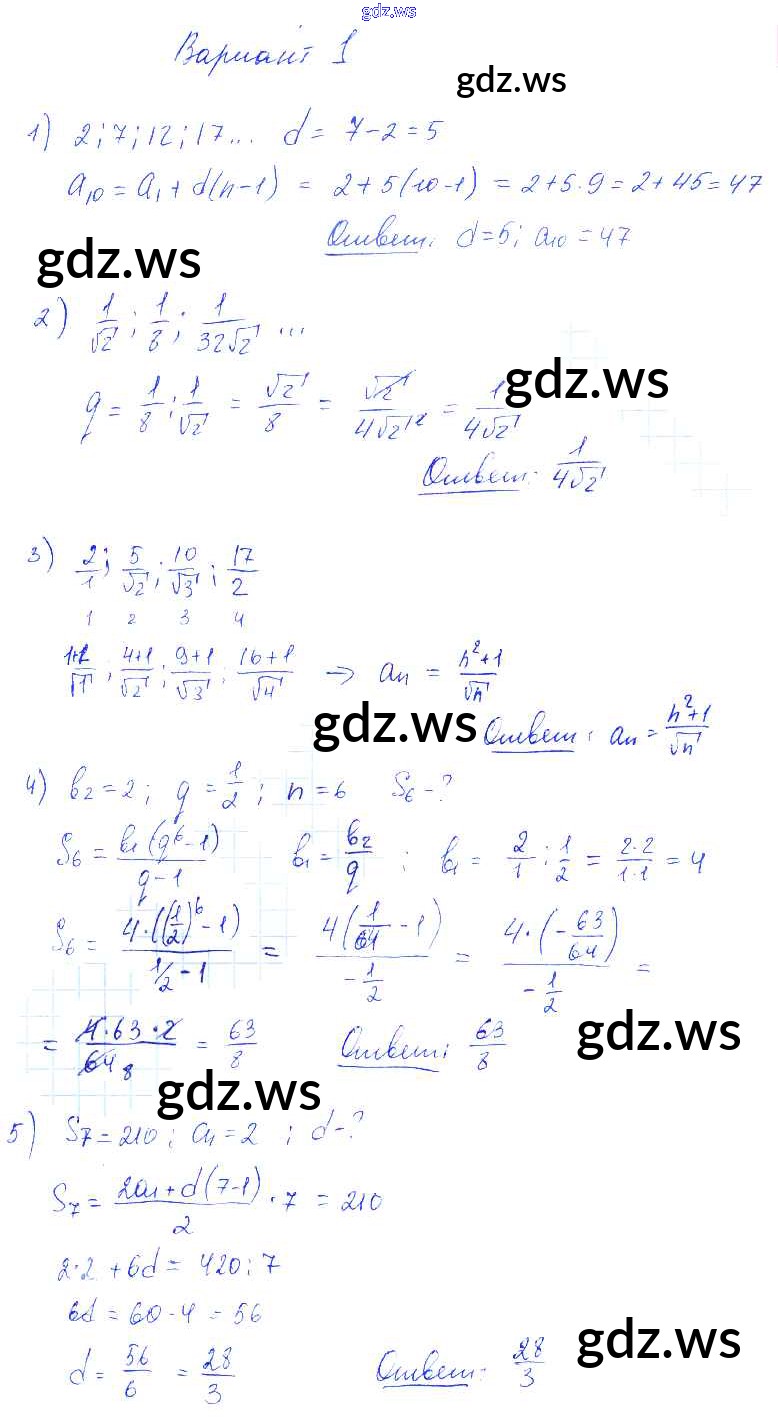 gdz.ws
Вариант 1
gdz.ws
1) 2; 7; 12; 17... d = 7-2=5
a₁₀ = a₁ + d(n-1) = 2+5(10-1) = 2+5·9=2+45=47
Ответ: d=5; a₁₀=47
gdz.ws
2) 1/√2; 1/8; 1/32√2 ...
gdz.ws
q = 1/8 : 1/√2 = √2/8 = √2/4√2² = 1/4√2
Ответ: 1/4√2
3) 2/1; 5/√2; 10/√3; 17/2
1 2 3 4
1+1/√1; 4+1/√2; 9+1/√3; 16+1/√4 → an = n²+1/√n
gdz.ws
Ответ: an = n²+1/√n
4) b₂=2; q = 1/2; n=6 S₆-?
S₆ = b₁(q⁶-1)/q-1 b₁ = b₂/q; b₁ = 2/1 : 1/2 = 2·2/1·1 = 4
S₆ = 4·((1/2)⁶-1)/1/2-1 = 4(1/64-1)/-1/2 = 4·(-63/64)/-1/2 =
= 4·63·2/64 8 = 63/8 Ответ: 63/8
gdz.ws
gdz.ws
5) S₇=210; a₁=2; d-?
S₇ = 2a₁+d(7-1)/2 · 7 = 210
2·2 + 6d = 420:7
6d = 60-4 = 56
d = 56/6 = 28/3 Ответ: 28/3
gdz.ws